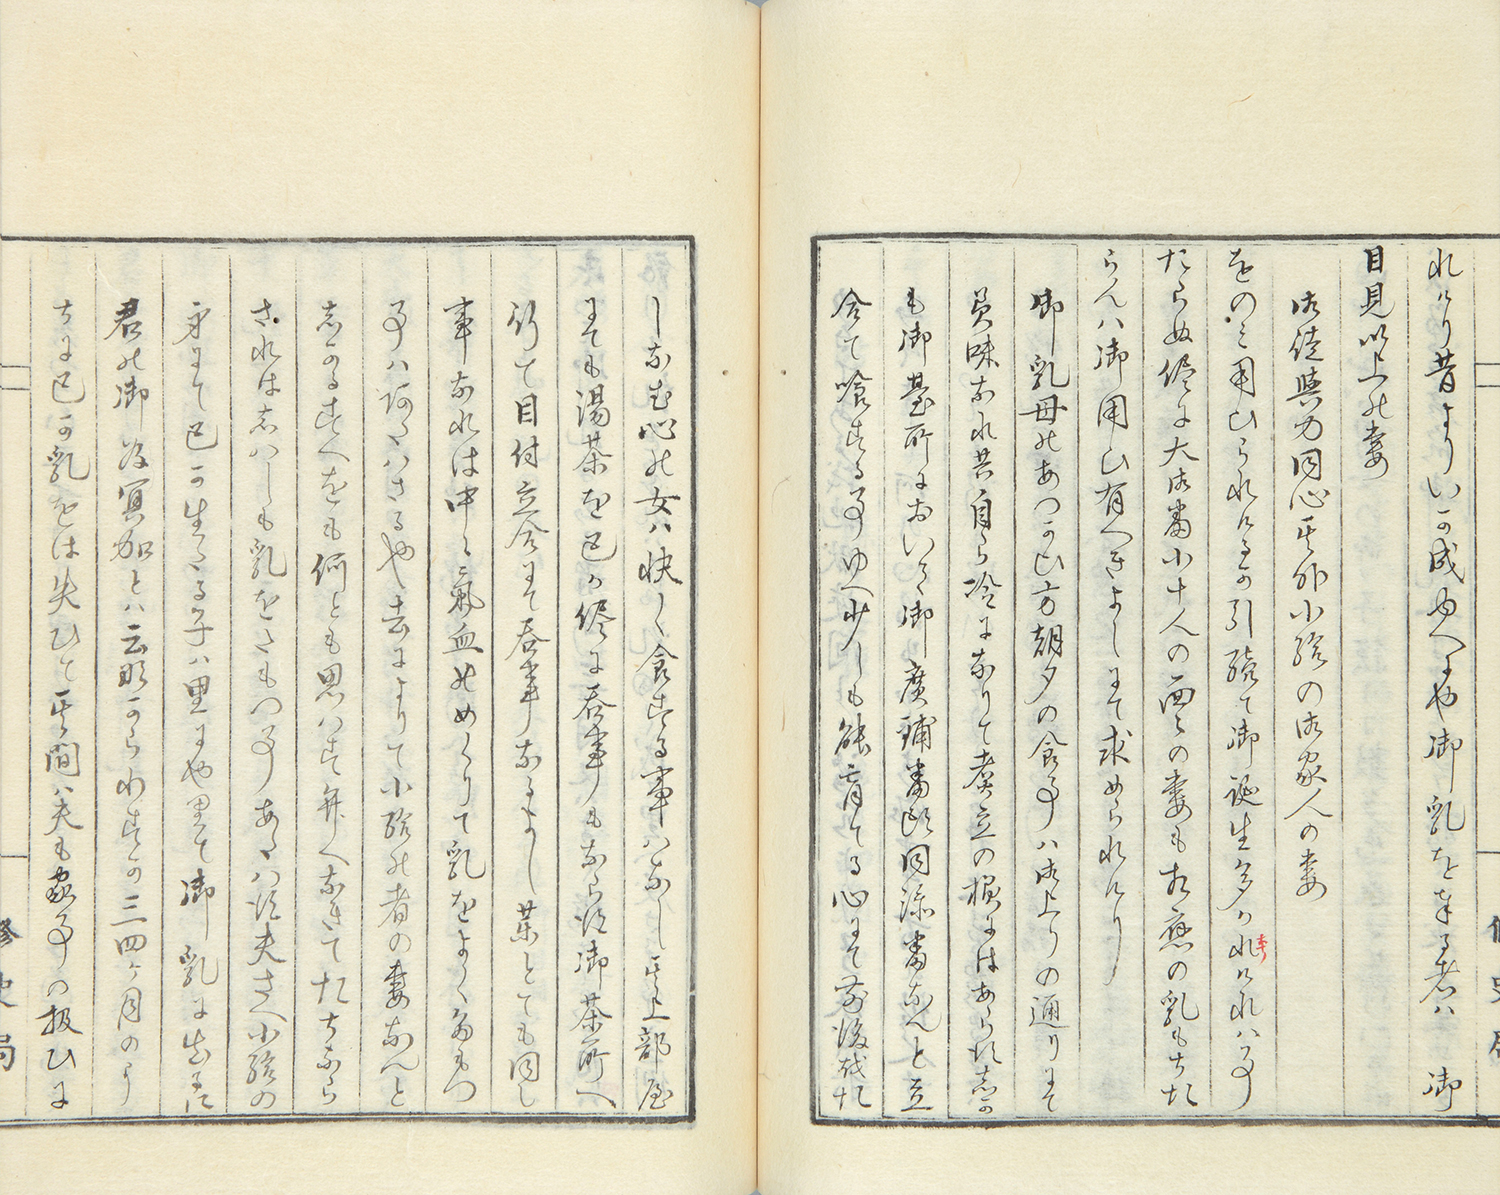 れけり昔よりいか成ゆへにや御乳を奉る者ハ　御
目見以上の妻
御徒与力同心其外小給の御家人の妻
をのミ用ひられけるか引続て御誕生多かれけれハ事
たらぬ儘に大御番小十人の面々の妻も相応の乳もちた
らんハ御用ひ有へきよしにて求められけり
御乳母のあつかひ方朝夕の食事ハ御上りの通りにて
美味なれ共自ら冷になりて煮立の様にはあらす志か
も御台所においても御広鋪番頭同添番なんと立
合て喰する事ゆへ少しも能育てる心にて前後せた
しなむ心の女ハ快く食する事ハなし其上部屋
にても湯茶を己か儘に呑事もならす御茶所へ
行て目付立合にて呑事なるよし菓とても同し
事なれは中々気血のめくりて乳をよく為もつ
事ハ阿るハさるや去によりて小給の者の妻なんと
志かるすへをも何とも思ハす弁へなきてたちふら
されは志ハしも乳をたもつ事あるハ須夫さへ小給の
身にて己か生るる子ハ里にや里て御乳に出るに
君の御為冥加とハ云難からわすか三四ヶ月のうり
ちに己か乳をは失ひて其間ハ夫も家事の扱ひに
修史局